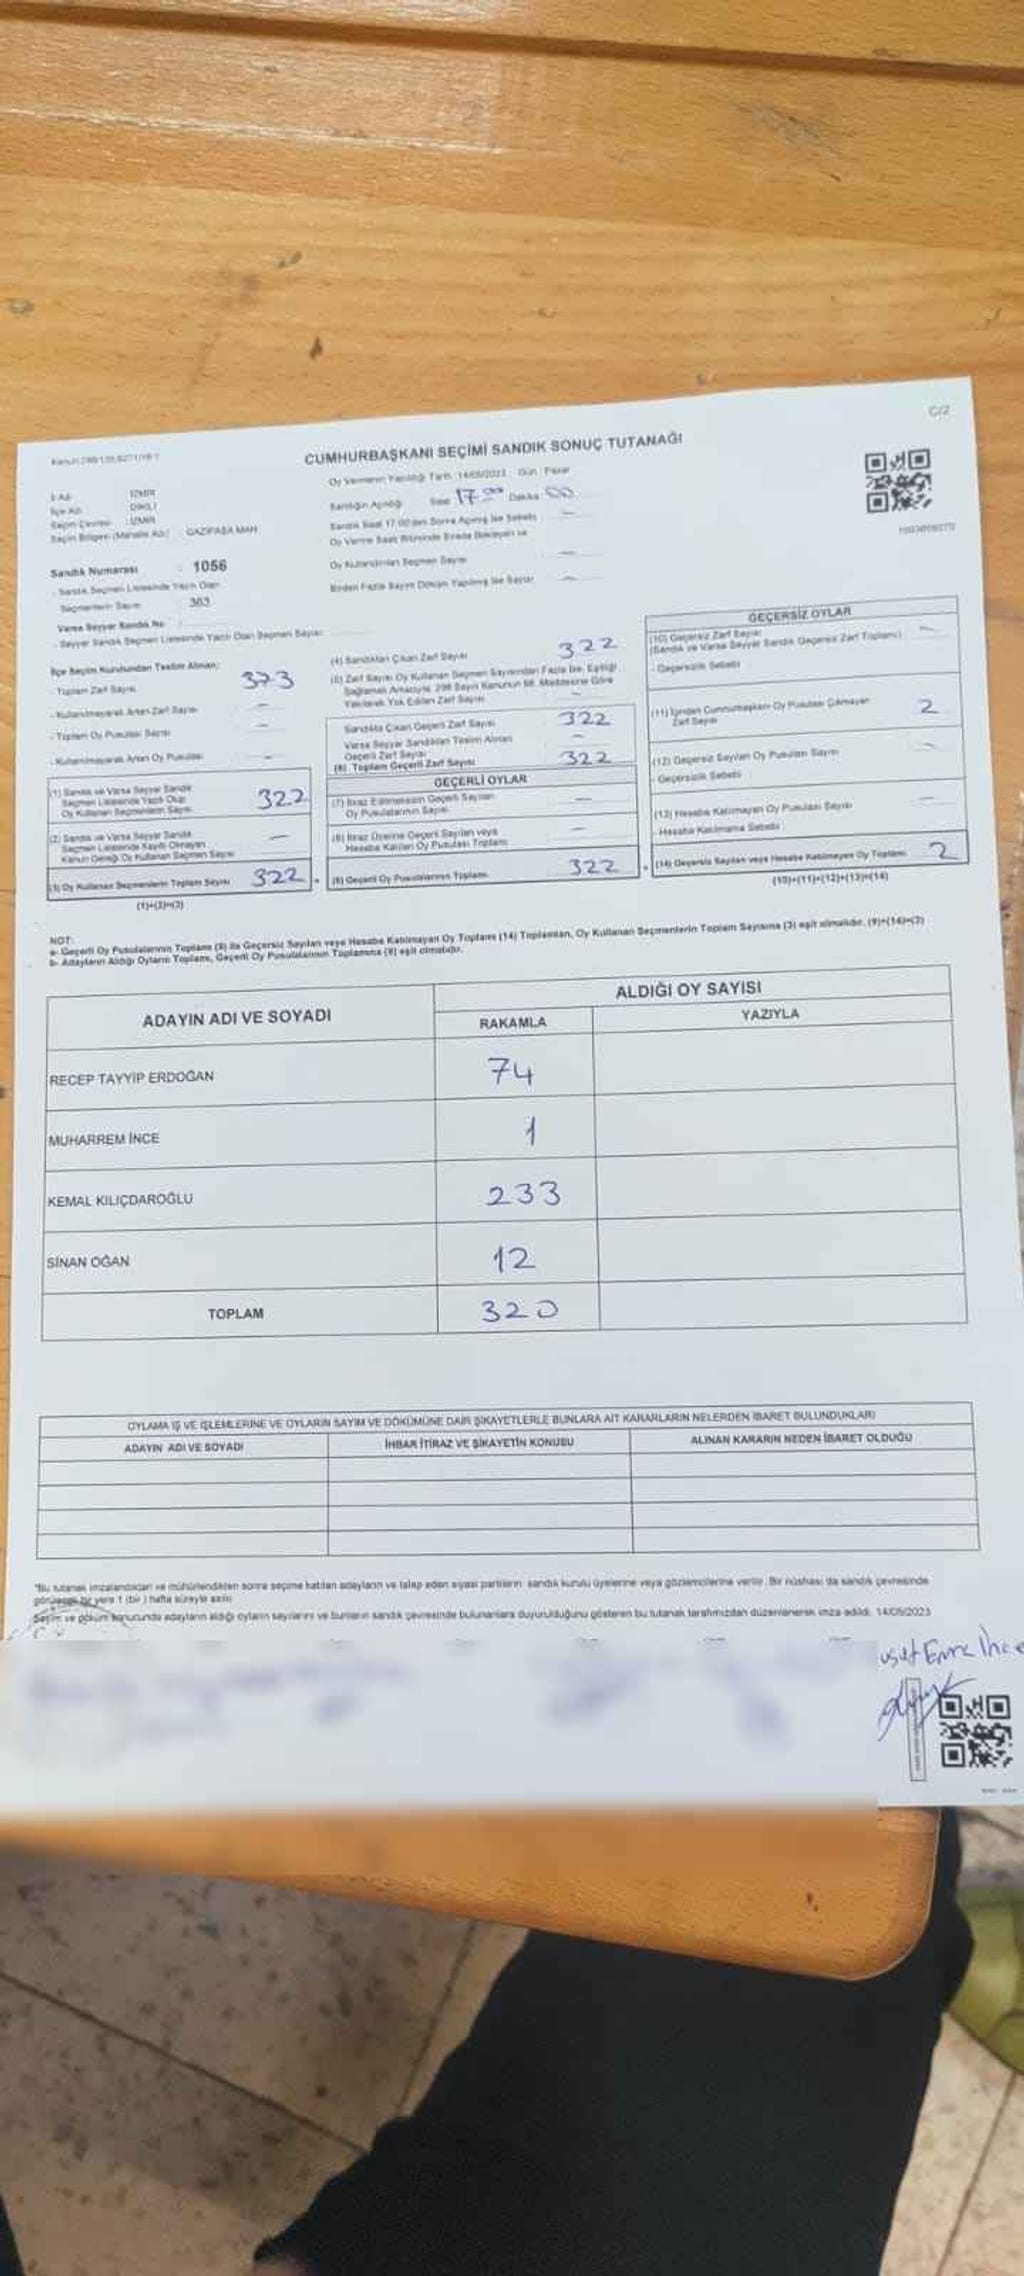 C/2
CUMHURBAŞKANI SEÇİMİ SANDIK SONUÇ TUTANAĞI
Oy Vermenin Yapıldığı Tarih : 14/05/2023 Gün : Pazar
İl Adı : İZMİR
İlçe Adı : DİKİLİ
Seçim Çevresi : İZMİR
Seçim Bölgesi (Mahalle Adı) : GAZİPAŞA MAH.
Sandığın Açıldığı Saat 17.00 Dakika 00
Sandık Saat 17.00'den Sonra Açılmış İse Sebebi
Oy Verme Saati Bitiminde Sırada Bekleyen ve
Oy Kullandırılan Seçmen Sayısı
Birden Fazla Sayım Döküm Yapılmış İse Sayısı
Sandık Numarası : 1056
- Sandık Seçmen Listesinde Yazılı Olan
Seçmenlerin Sayısı : 363
Varsa Seyyar Sandık No :
- Seyyar Sandık Seçmen Listesinde Yazılı Olan Seçmen Sayısı:
İlçe Seçim Kurulundan Teslim Alınan;
- Toplam Zarf Sayısı 373
- Kullanılmayarak Artan Zarf Sayısı —
- Toplam Oy Pusulası Sayısı —
- Kullanılmayarak Artan Oy Pusulası —
(1) Sandık ve Varsa Seyyar Sandık
Seçmen Listesinde Yazılı Olup
Oy Kullanan Seçmenlerin Sayısı 322
(2) Sandık ve Varsa Seyyar Sandık
Seçmen Listesinde Kayıtlı Olmayan
Kanun Gereği Oy Kullanan Seçmen Sayısı —
(3) Oy Kullanan Seçmenlerin Toplam Sayısı 322
(1)+(2)=(3)
(4) Sandıktan Çıkan Zarf Sayısı 322
(5) Zarf Sayısı Oy Kullanan Seçmen Sayısından Fazla İse, Eşitliği
Sağlamak Amacıyla 298 Sayılı Kanunun 98. Maddesine Göre
Yakılarak Yok Edilen Zarf Sayısı —
Sandıkta Çıkan Geçerli Zarf Sayısı 322
Varsa Seyyar Sandıktan Teslim Alınan
Geçerli Zarf Sayısı —
(6) Toplam Geçerli Zarf Sayısı 322
GEÇERLİ OYLAR
(7) İtiraz Edilmeksizin Geçerli Sayılan
Oy Pusulalarının Sayısı —
(8) İtiraz Üzerine Geçerli Sayılan veya
Hesaba Katılan Oy Pusulası Toplamı —
(9) Geçerli Oy Pusulalarının Toplamı 322
GEÇERSİZ OYLAR
(10) Geçersiz Zarf Sayısı
(Sandık ve Varsa Seyyar Sandık Geçersiz Zarf Toplamı) —
- Geçersizlik Sebebi
(11) İçinden Cumhurbaşkanı Oy Pusulası Çıkmayan
Zarf Sayısı 2
(12) Geçersiz Sayılan Oy Pusulası Sayısı —
- Geçersizlik Sebebi
(13) Hesaba Katılmayan Oy Pusulası Sayısı —
- Hesaba Katılmama Sebebi
(14) Geçersiz Sayılan veya Hesaba Katılmayan Oy Toplamı 2
(10)+(11)+(12)+(13)=(14)
NOT:
a- Geçerli Oy Pusulalarının Toplamı (9) ile Geçersiz Sayılan veya Hesaba Katılmayan Oy Toplamı (14) Toplamları, Oy Kullanan Seçmenlerin Toplam Sayısına (3) eşit olmalıdır. (9)+(14)=(3)
b- Adayların Aldığı Oyların Toplamı, Geçerli Oy Pusulalarının Toplamına (9) eşit olmalıdır.
ADAYIN ADI VE SOYADI
ALDIĞI OY SAYISI
RAKAMLA YAZIYLA
RECEP TAYYİP ERDOĞAN 74
MUHARREM İNCE 1
KEMAL KILIÇDAROĞLU 233
SİNAN OĞAN 12
TOPLAM 320
OYLAMA İŞ VE İŞLEMLERİNE VE OYLARIN SAYIM VE DÖKÜMÜNE DAİR ŞİKAYETLERLE BUNLARA AİT KARARLARIN NELERDEN İBARET BULUNDUKLARI
ADAYIN ADI VE SOYADI İHBAR İTİRAZ VE ŞİKAYETİN KONUSU ALINAN KARARIN NEDEN İBARET OLDUĞU
"Bu tutanak imzalandıktan ve mühürlendikten sonra seçime katılan adayların ve talep eden siyasi partilerin sandık kurulu üyelerine veya gözlemcilerine verilir. Bir nüshası da sandık çevresinde
görülecek bir yere 1 (bir) hafta süreyle asılır.
Sayım ve döküm sonucunda adayların aldığı oyların sayılarını ve bunların sandık çevresinde bulunanlara duyurulduğunu gösteren bu tutanak tarafımızdan düzenlenerek imza edildi. 14/05/2023
usuf Emre İnce